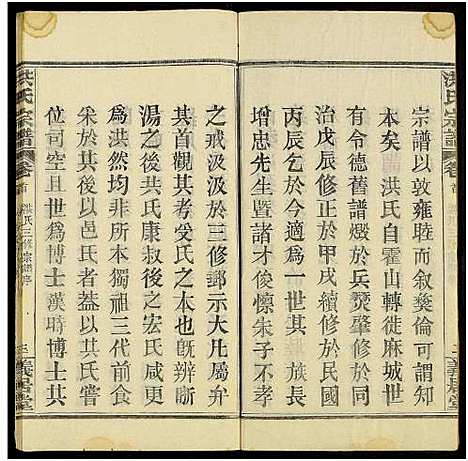 洪氏宗譜 卷首
宗譜以敦雍睦而叙彝倫可謂知
本矣 洪氏自霍山轉徙麻城世
有令德舊譜燬於兵燹肇修於同
治戊辰修於甲戌續修於民國
丙辰迄於今適為一世其
增忠先生暨諸才俊懔朱子不孝
之戒汲汲於三修鄉示大凡屬弁
其首觀其考受氏之由既辨晰
湯之後共氏康叔後之宏氏咸更
為洪然均非所本獨祖三代前食
采於共邑者蓋以共氏嘗
位司空且世為博士漢時博士其
洪氏宗譜 卷首 洪氏三修宗譜序
三 義居堂